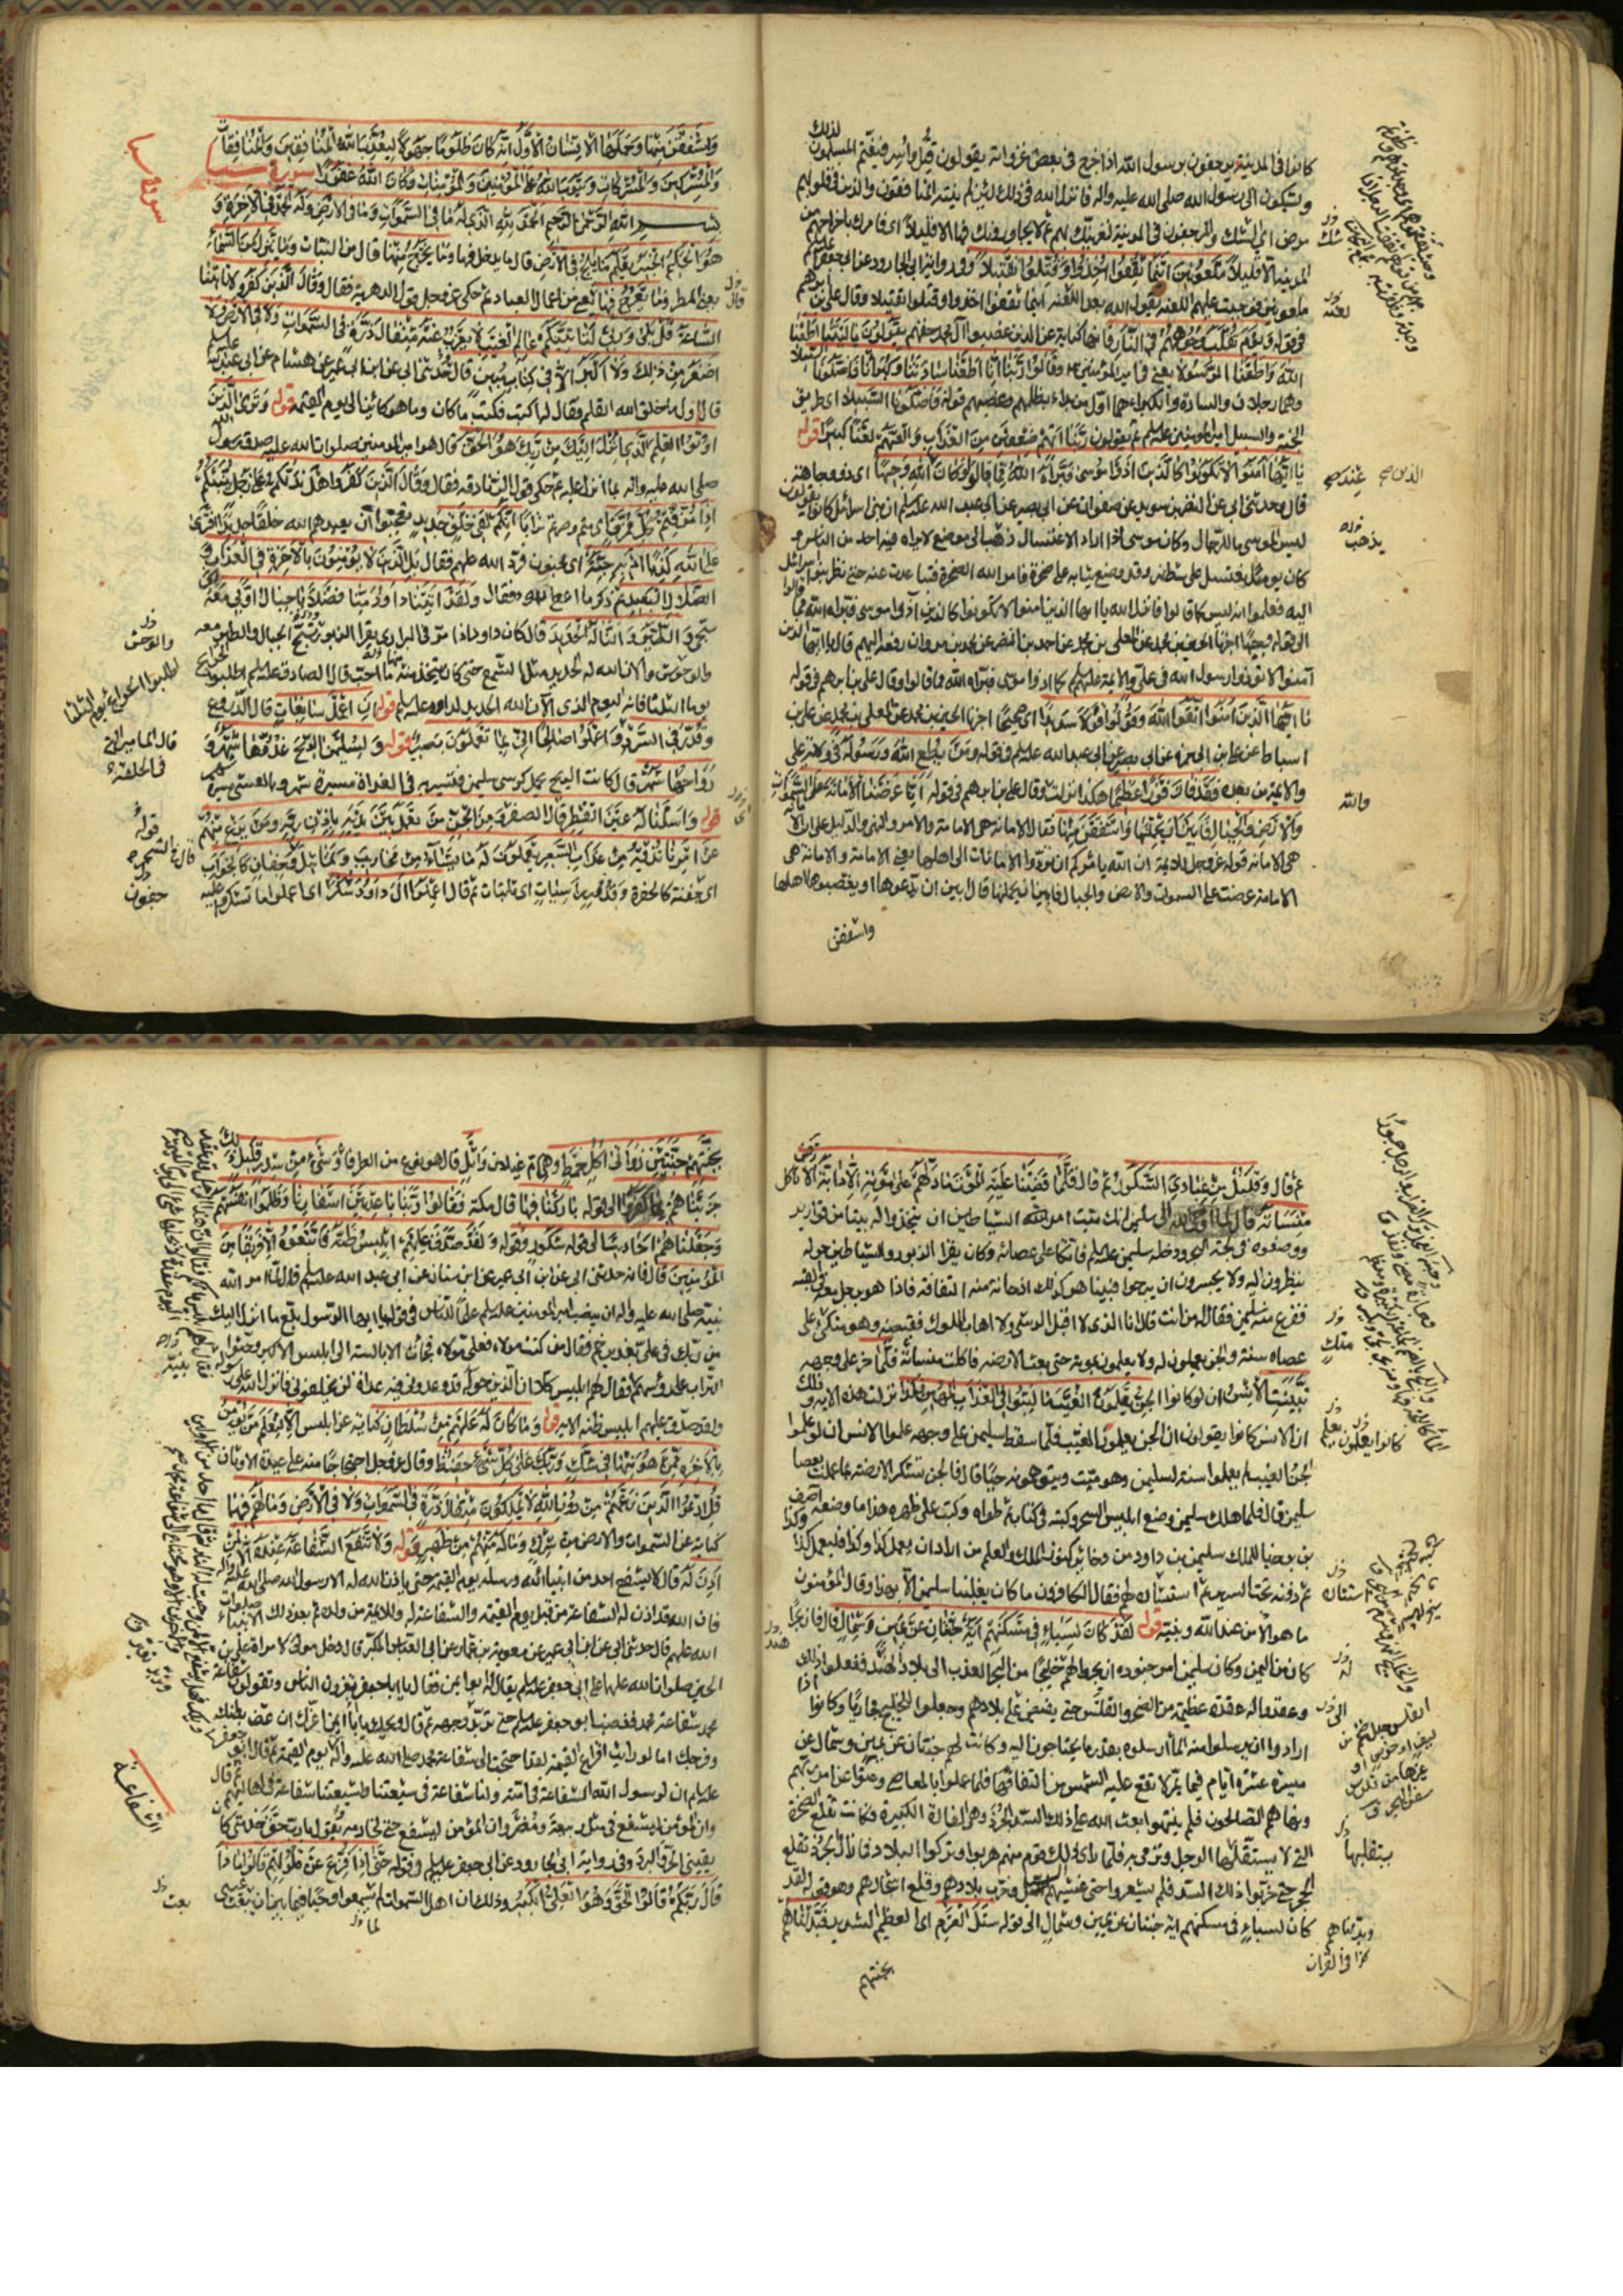 كانوا في المدينة يرجفون برسول الله اذا خرج في بعض غزواته يقولون قتل واسر فيغتم المسلمون لذلك
ويشكون الى رسول الله صلى الله عليه واله فانزل الله في ذلك لئن لم ينته المنافقون والذين في قلوبهم
مرض اي شك والمرجفون في المدينة لنغرينك بهم ثم لا يجاورونك فيها الا قليلا اي نامرك باخراجهم من
المدينة الا قليلا ملعونين اينما ثقفوا اخذوا وقتلوا تقتيلا وفي رواية ابي الجارود عن ابي جعفر عليه السلم
ملعونين فوجبت عليهم اللعنة يقول الله بعد اللعنة اينما ثقفوا اخذوا وقتلوا تقتيلا وقال علي بن ابرهيم
في قوله يوم تقلب وجوههم في النار فانها كناية عن الذين غصبوا آل محمد حقهم يقولون يا ليتنا اطعنا
الله واطعنا الرسولا يعني في امير المؤمنين وقالوا ربنا انا اطعنا سادتنا وكبراءنا فاضلونا السبيلا
وهما رجلان والسادة والكبراء هما اول من بدء بظلمهم وغصبهم قوله فاضلونا السبيلا اي طريق
الجنة والسبيل امير المؤمنين عليه السلم ثم يقولون ربنا اتهم ضعفين من العذاب والعنهم لعنا كبيرا قوله
يا ايها الذين آمنوا لا تكونوا كالذين آذوا موسى فبراه الله مما قالوا وكان عند الله وجيها اي ذو وجاهة
قال وحدثني ابي عن النضر بن سويد عن صفوان عن ابي بصير عن ابي عبد الله عليه السلم ان بني اسرائيل كانوا يقولون
ليس لموسى ما للرجال وكان موسى اذا اراد الاغتسال ذهب الى موضع لا يراه فيه احد من الناس و
كان يوما يغتسل على شط نهر وقد وضع ثيابه على صخرة فامر الله الصخرة فتباعدت عنه حتى نظر بنو اسرائيل
اليه فعلموا انه ليس كما قالوا فانزل الله يا ايها الذين امنوا لا تكونوا كالذين آذوا موسى فبراه الله مما قالوا
الى قوله وجيها اخبرنا الحسين بن محمد عن المعلى بن محمد عن احمد بن النضر عن محمد بن مروان رفعه اليهم قال يا ايها الذين
آمنوا لا تؤذوا رسول الله في علي والائمة عليهم كما اذوا موسى فبراه الله مما قالوا وقال علي بن ابرهيم في قوله
يا ايها الذين آمنوا اتقوا الله وقولوا قولا سديدا اي صحيحا اخبرنا الحسين بن محمد عن المعلى بن محمد عن علي بن
اسباط عن علي بن ابي حمزة عن ابي بصير عن ابي عبد الله عليه السلم في قوله ومن يطع الله ورسوله في ولاية علي
والائمة من بعده فقد فاز فوزا عظيما هكذا نزلت وقال علي بن ابرهيم في قوله انا عرضنا الامانة على السموات
والارض والجبال فابين ان يحملنها واشفقن منها فقال الامانة هي الامامة والامر والنهي والدليل على ان الامانة
هي الامامة قوله عز وجل للائمة ان الله يامركم ان تؤدوا الامانات الى اهلها يعني الامامة والامانة هي
الامامة عرضت على السموات والارض والجبال فابين ان يحملنها قال بين ان يدعوها او يغصبوها اهلها
واشفقن
شك
لعنه
والله
واشفقن منها وحملها الانسان الاول انه كان ظلوما جهولا ليعذب الله المنافقين والمنافقات
والمشركين والمشركات ويتوب الله على المؤمنين والمؤمنات وكان الله غفورا سورة سبا
بسم الله الرحمن الرحيم الحمد لله الذي له ما في السموات وما في الارض وله الحمد في الاخرة و
هو الحكيم الخبير يعلم ما يلج في الارض قال ما يدخل فيها وما يخرج منها قال من النبات وما ينزل من السماء
يعني المطر وما يعرج فيها يعني من اعمال العباد ثم حكى عز وجل قول الدهرية فقال وقال الذين كفروا لا تاتينا
الساعة قل بلى وربي لتاتينكم عالم الغيب لا يعزب عنه مثقال ذرة في السموات ولا في الارض ولا
اصغر من ذلك ولا اكبر الا في كتاب مبين قال حدثني ابي عن ابن ابي عمير عن هشام عن ابي عبد الله عليه السلم
قال اول ما خلق الله القلم فقال له اكتب فكتب ما كان وما هو كائن الى يوم القيمة قوله ويرى الذين
اوتوا العلم الذي انزل اليك من ربك هو الحق قال هو امير المؤمنين صلوات الله عليه صدق رسول الله
صلى الله عليه واله بما انزل عليه ثم حكى قول الزنادقة فقال وقال الذين كفروا هل ندلكم على رجل ينبئكم
اذا مزقتم كل ممزق اي متم وصرتم ترابا انكم لفي خلق جديد تعجبوا ان يعيدهم الله خلقا جديدا افترى
على الله كذبا ام به جنة اي مجنون فرد الله عليهم فقال بل الذين لا يؤمنون بالاخرة في العذاب و
الضلال البعيد ثم ذكر ما اعطى داود فقال ولقد آتينا داود منا فضلا يا جبال اوبي معه اي
سبحي والطير والنا له الحديد قال كان داود اذا مر في البراري يقرا الزبور تسبح الجبال والطير معه
والوحوش والان الله له الحديد مثل الشمع حتى كان يتخذ منه ما احب قال الصادق عليه السلم اطلبوا الحوائج
يوم الثلثا فانه اليوم الذي الان الله الحديد لداود عليه السلم قوله ان اعمل سابغات قال الدروع
وقدر في السرد واعملوا صالحا اني بما تعملون بصير قوله ولسليمن الريح غدوها شهر و
رواحها شهر قال كانت الريح تحمل كرسي سليمن فتسير به في الغداة مسيرة شهر وبالعشي مسيرة شهر
قوله واسلنا له عين القطر قال الصفر ومن الجن من يعمل بين يديه باذن ربه ومن يزغ منهم
عن امرنا نذقه من عذاب السعير يعملون له ما يشاء من محاريب وتماثيل وجفان كالجواب
اي جفنة كالحفرة وقدور راسيات اي ثابتات ثم قال اعملوا آل داود شكرا اي اعملوا ما تشكرون عليه
سورة سبا
والوحش
اطلبوا الحوائج يوم الثلثا
قال المسامير التي
في الحلقة
قوله
قال الشجر
جفون
ثم قال وقليل من عبادي الشكور ثم قال فلما قضينا عليه الموت ما دلهم على موته الا دابة الارض تاكل
منساته قال لما اوحى الله الى سليمن انك ميت امر الله الشياطين ان يتخذوا له بيتا من قوارير
ووضعوه في لجة البحر ودخله سليمن عليه السلم فاتكا على عصائه وكان يقرا الزبور والشياطين حوله
ينظرون اليه ولا يجسرون ان يبرحوا فبينا هو كذلك اذ حانت منه التفاتة فاذا هو برجل معه في القبة
ففزع منه سليمن فقال له من انت قال انا الذي لا اقبل الرشى ولا اهاب الملوك فقبضه وهو متكئ على
عصاه سنة والجن يعملون له ولا يعلمون بموته حتى بعث الارضة فاكلت منساته فلما خر على وجهه
تبينت الانس ان لو كانوا الجن يعلمون الغيب ما لبثوا في العذاب المهين فكذا نزلت هذه الاية وذلك
ان الانس كانوا يقولون ان الجن يعلمون الغيب فلما سقط سليمن على وجهه علموا الانس ان لو علموا
الجن الغيب لم يعملوا سنة لسليمن وهو ميت ويتوهمونه حيا قال فالجن تشكر الارضة بما عملت بعصا
سليمن قال فلما هلك سليمن وضع ابليس السحر وكتبه في كتاب ثم طواه وكتب على ظهره هذا ما وضع آصف
بن برخيا للملك سليمن بن داود من ذخائر كنوز الملك والعلم من اراد ان يعمل كذا وكذا فليعمل كذا وكذا
ثم دفنه تحت السرير ثم استشاره لهم فقال الكافرون ما كان يغلبنا سليمن الا بهذا وقال المؤمنون
ما هو الا من عند الله ونبيه قوله لقد كان لسباء في مسكنهم اية جنتان عن يمين وشمال قال فان بحرا
كان من اليمن وكان سليمن امر جنوده ان يجروا لهم خليجا من البحر العذب الى بلاد الهند ففعلوا ذلك
وعقدوا له عقدة عظيمة من الصخر والقلس حتى يفيض على بلادهم وجعلوا للخليج مجاريا وكانوا اذا
ارادوا ان يرسلوا منه الماء ارسلوه بقدر ما يحتاجون اليه وكانت لهم جنتان عن يمين وشمال عن
مسيرة عشرة ايام فيما يمر لا تقع عليه الشمس من التفافها فلما عملوا بالمعاصي وعتوا عن امر ربهم
ونهاهم الصالحون فلم ينتهوا بعث الله على ذلك السد الجرذ وهي الفارة الكبيرة فكانت تقلع الصخرة
التي لا يستقلها الرجل وترمي به فلما راى ذلك قوم منهم هربوا وتركوا البلاد فما زال الجرذ تقلع
الحجر حتى خربوا ذلك السد فلم يشعروا حتى غشيهم السيل وخرب بلادهم وقلع اشجارهم وهو قوله لقد
كان لسباء في مسكنهم اية جنتان عن يمين وشمال الى قوله سيل العرم اي العظيم الشديد فبدلناهم
بجنتيهم
كانوا يعلمون
وبدلناهم
كذا في القران
بجنتيهم جنتين ذواتي اكل خمط وهي ام غيلان واثل قال هو نوع من الطرفا وشيء من سدر قليل ذلك
جزيناهم بما كفروا الى قوله باركنا فيها قال مكة فقالوا ربنا باعد بين اسفارنا وظلموا انفسهم
وجعلناهم احاديث الى قوله شكور وقوله ولقد صدق عليهم ابليس ظنه فاتبعوه الا فريقا من
المؤمنين قال فانه حدثني ابي عن ابن ابي عمير عن ابن سنان عن ابي عبد الله عليه السلم قال لما امر الله
نبيه صلى الله عليه واله ان ينصب امير المؤمنين عليه السلم علما للناس في قوله يا ايها الرسول بلغ ما انزل اليك
من ربك في علي بغدير خم فقال من كنت مولاه فعلي مولاه فجائت الابالسة الى ابليس الاكبر وحثوا
التراب على رؤسهم فقال لهم ابليس كلا ان الذين حوله قد وعدوني فيه عدة لن يخلفوني فانزل الله على رسوله
ولقد صدق عليهم ابليس ظنه الاية قوله وما كان له عليهم من سلطان كناية عن ابليس الا لنعلم من يؤمن
بالاخرة ممن هو منها في شك وربك على كل شيء حفيظ وقال عز وجل احتجاجا منه على عبدة الاوثان
قل ادعوا الذين زعمتم من دون الله لا يملكون مثقال ذرة في السموات ولا في الارض وما لهم فيها
كناية عن السموات والارض من شرك وما له منهم من ظهير قوله ولا تنفع الشفاعة عنده الا لمن
اذن له قال لا يشفع احد من انبياء الله ورسله يوم القيمة حتى ياذن الله له الا رسول الله صلى الله عليه واله
فان الله قد اذن له الشفاعة من قبل يوم القيمة والشفاعة له وللائمة من ولده ثم بعد ذلك للانبياء صلوات
الله عليهم قال حدثني ابي عن ابن ابي عمير عن معوية بن عمار عن ابي العباس المكبر قال دخل مولى لامراة علي بن
الحسين صلوات الله عليهما على ابي جعفر عليه السلم يقال له ابو ايمن فقال يا ابا جعفر تغرون الناس وتقولون شفاعة
محمد شفاعة محمد فغضب ابو جعفر عليه السلم حتى تربد وجهه ثم قال ويحك يا ابا ايمن اغرك ان عف بطنك
وفرجك اما لو رايت افزاع القيمة لقد احتجت الى شفاعة محمد صلى الله عليه واله يوم القيمة ثم قال ابو جعفر
عليه السلم ان لرسول الله الشفاعة في امته ولنا شفاعة في شيعتنا ولشيعتنا شفاعة في اهاليهم ثم قال
وان المؤمن ليشفع في مثل ربيعة ومضر وان المؤمن ليشفع حتى لخادمه يقول يا رب حق خدمتي كان
يقيني الحر والبرد وفي رواية ابي الجارود عن ابي جعفر عليه السلم في قوله حتى اذا فزع عن قلوبهم قالوا ماذا
قال ربكم قالوا الحق وهو العلي الكبير وذلك ان اهل السموات لم يسمعوا وحيا فيما بين ان بعث عيسى
الشفاعة
بعث